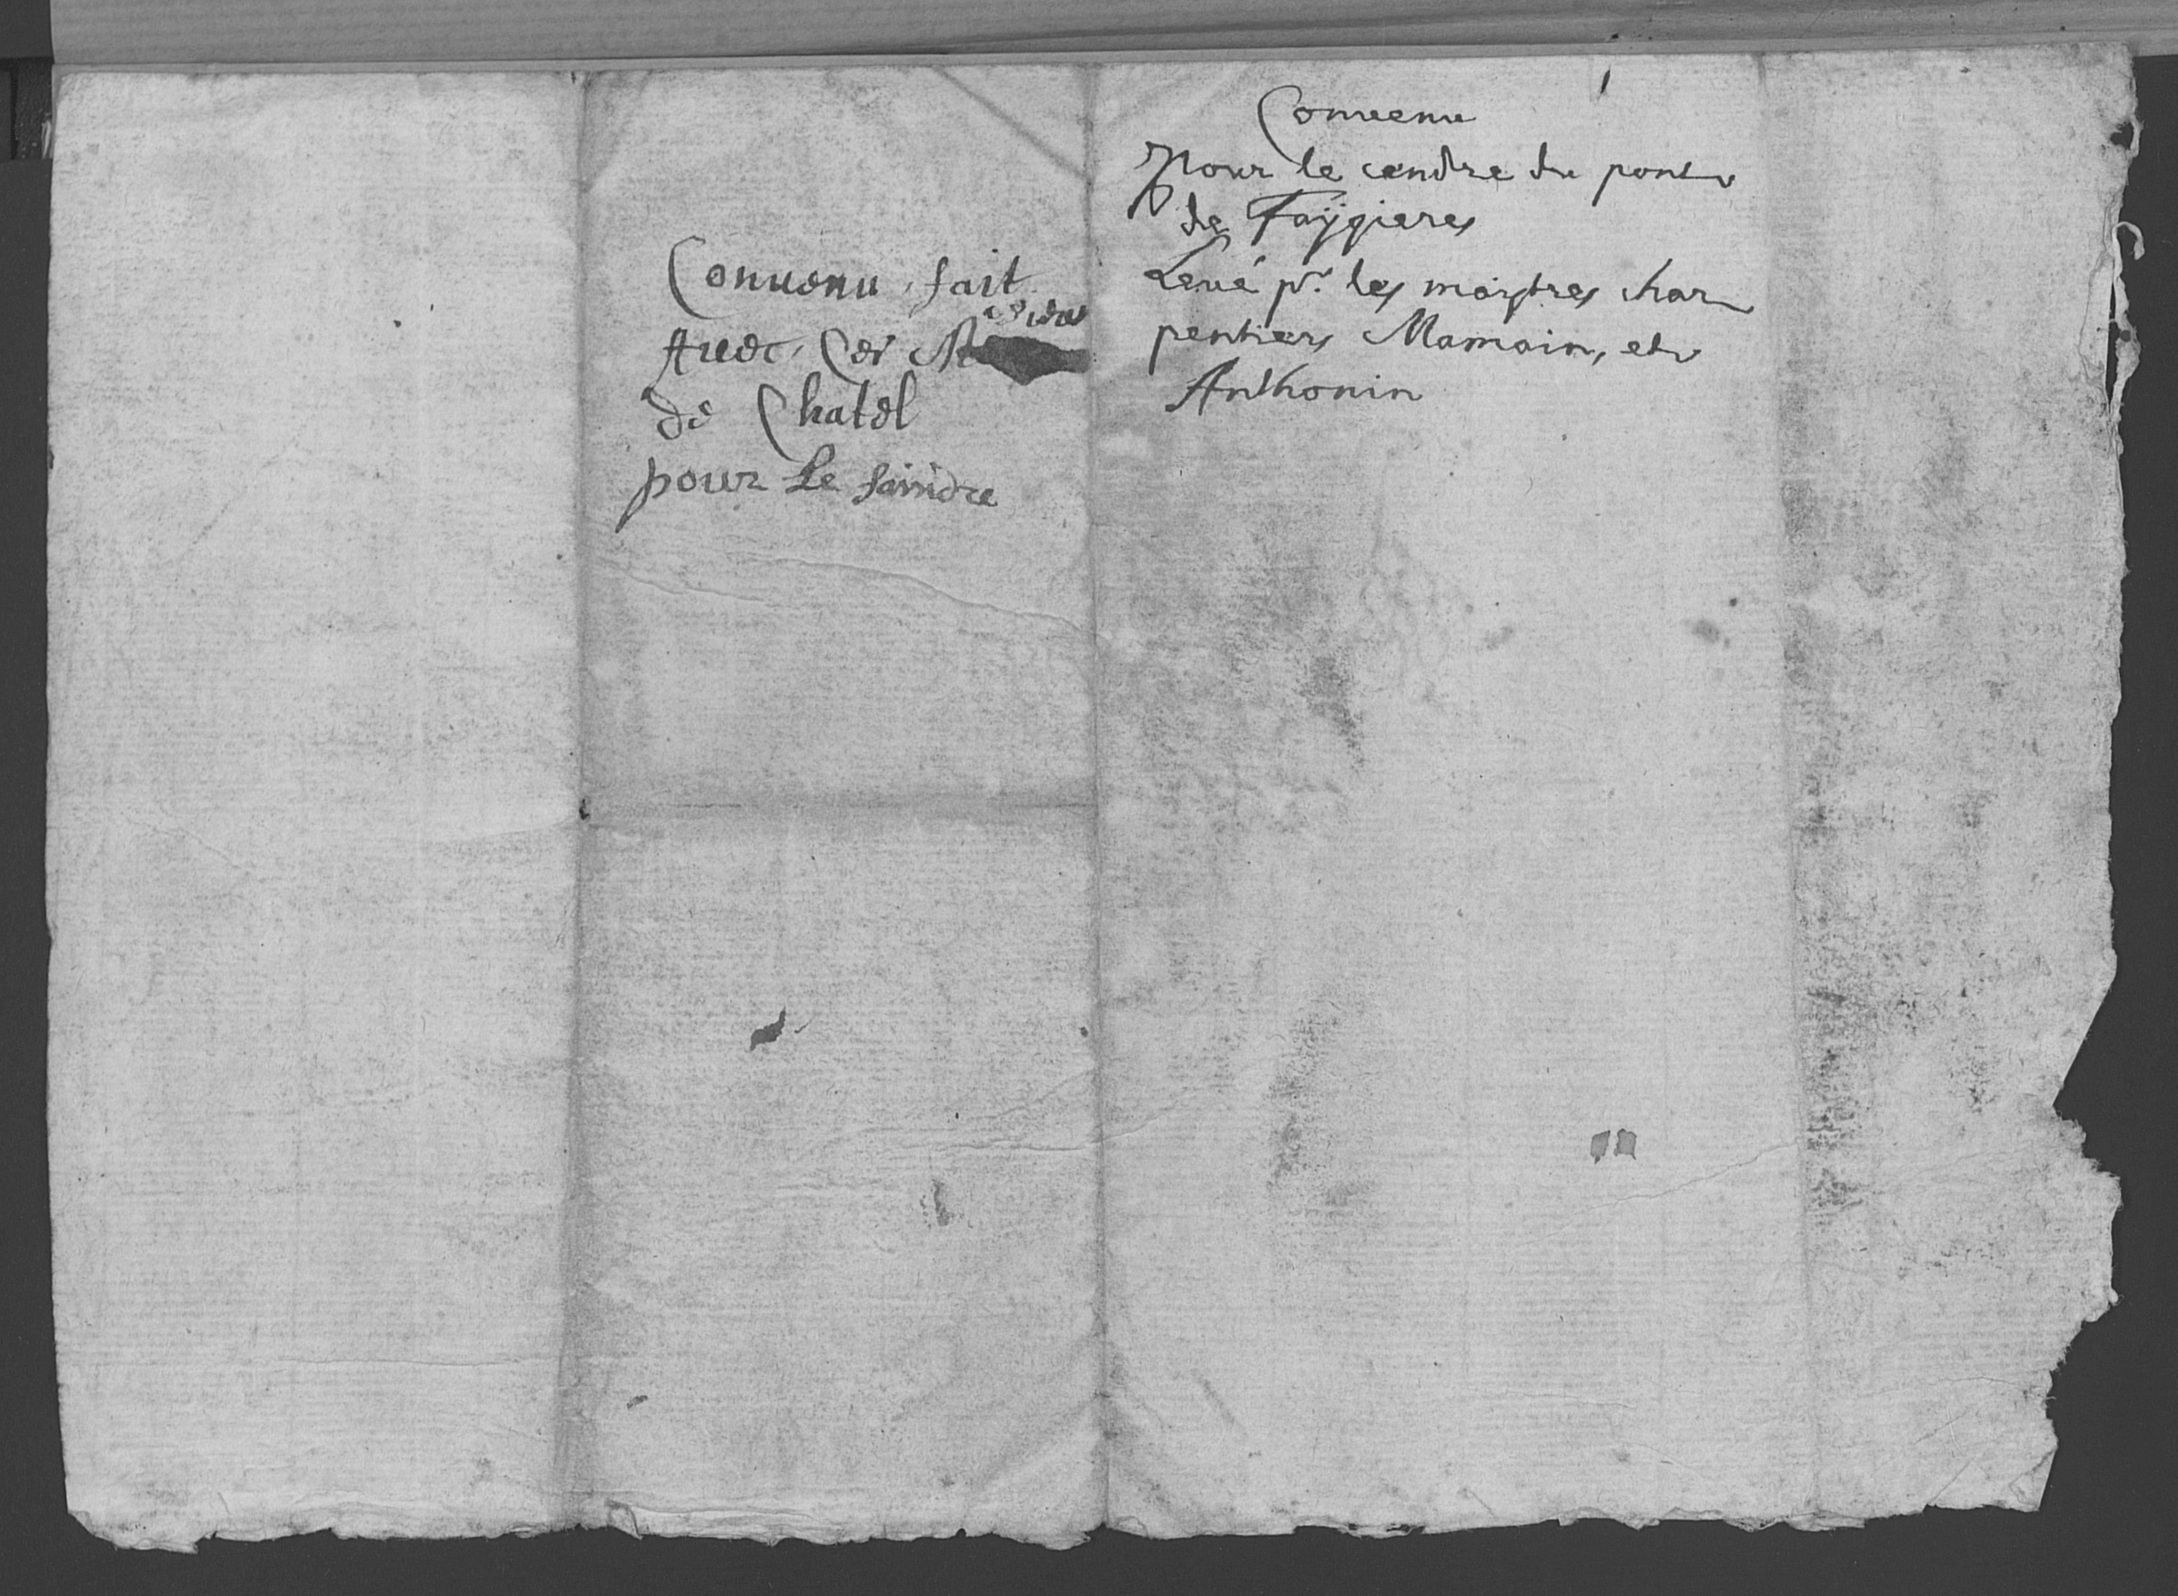 Conuenu fait
Auec Ces
de Chatel
pour Le saindre
Conuenu
Pour le cendre du pont
de Faÿgieres
Leué pr. les maystres char
pentiers Mamain, et
Anthonin